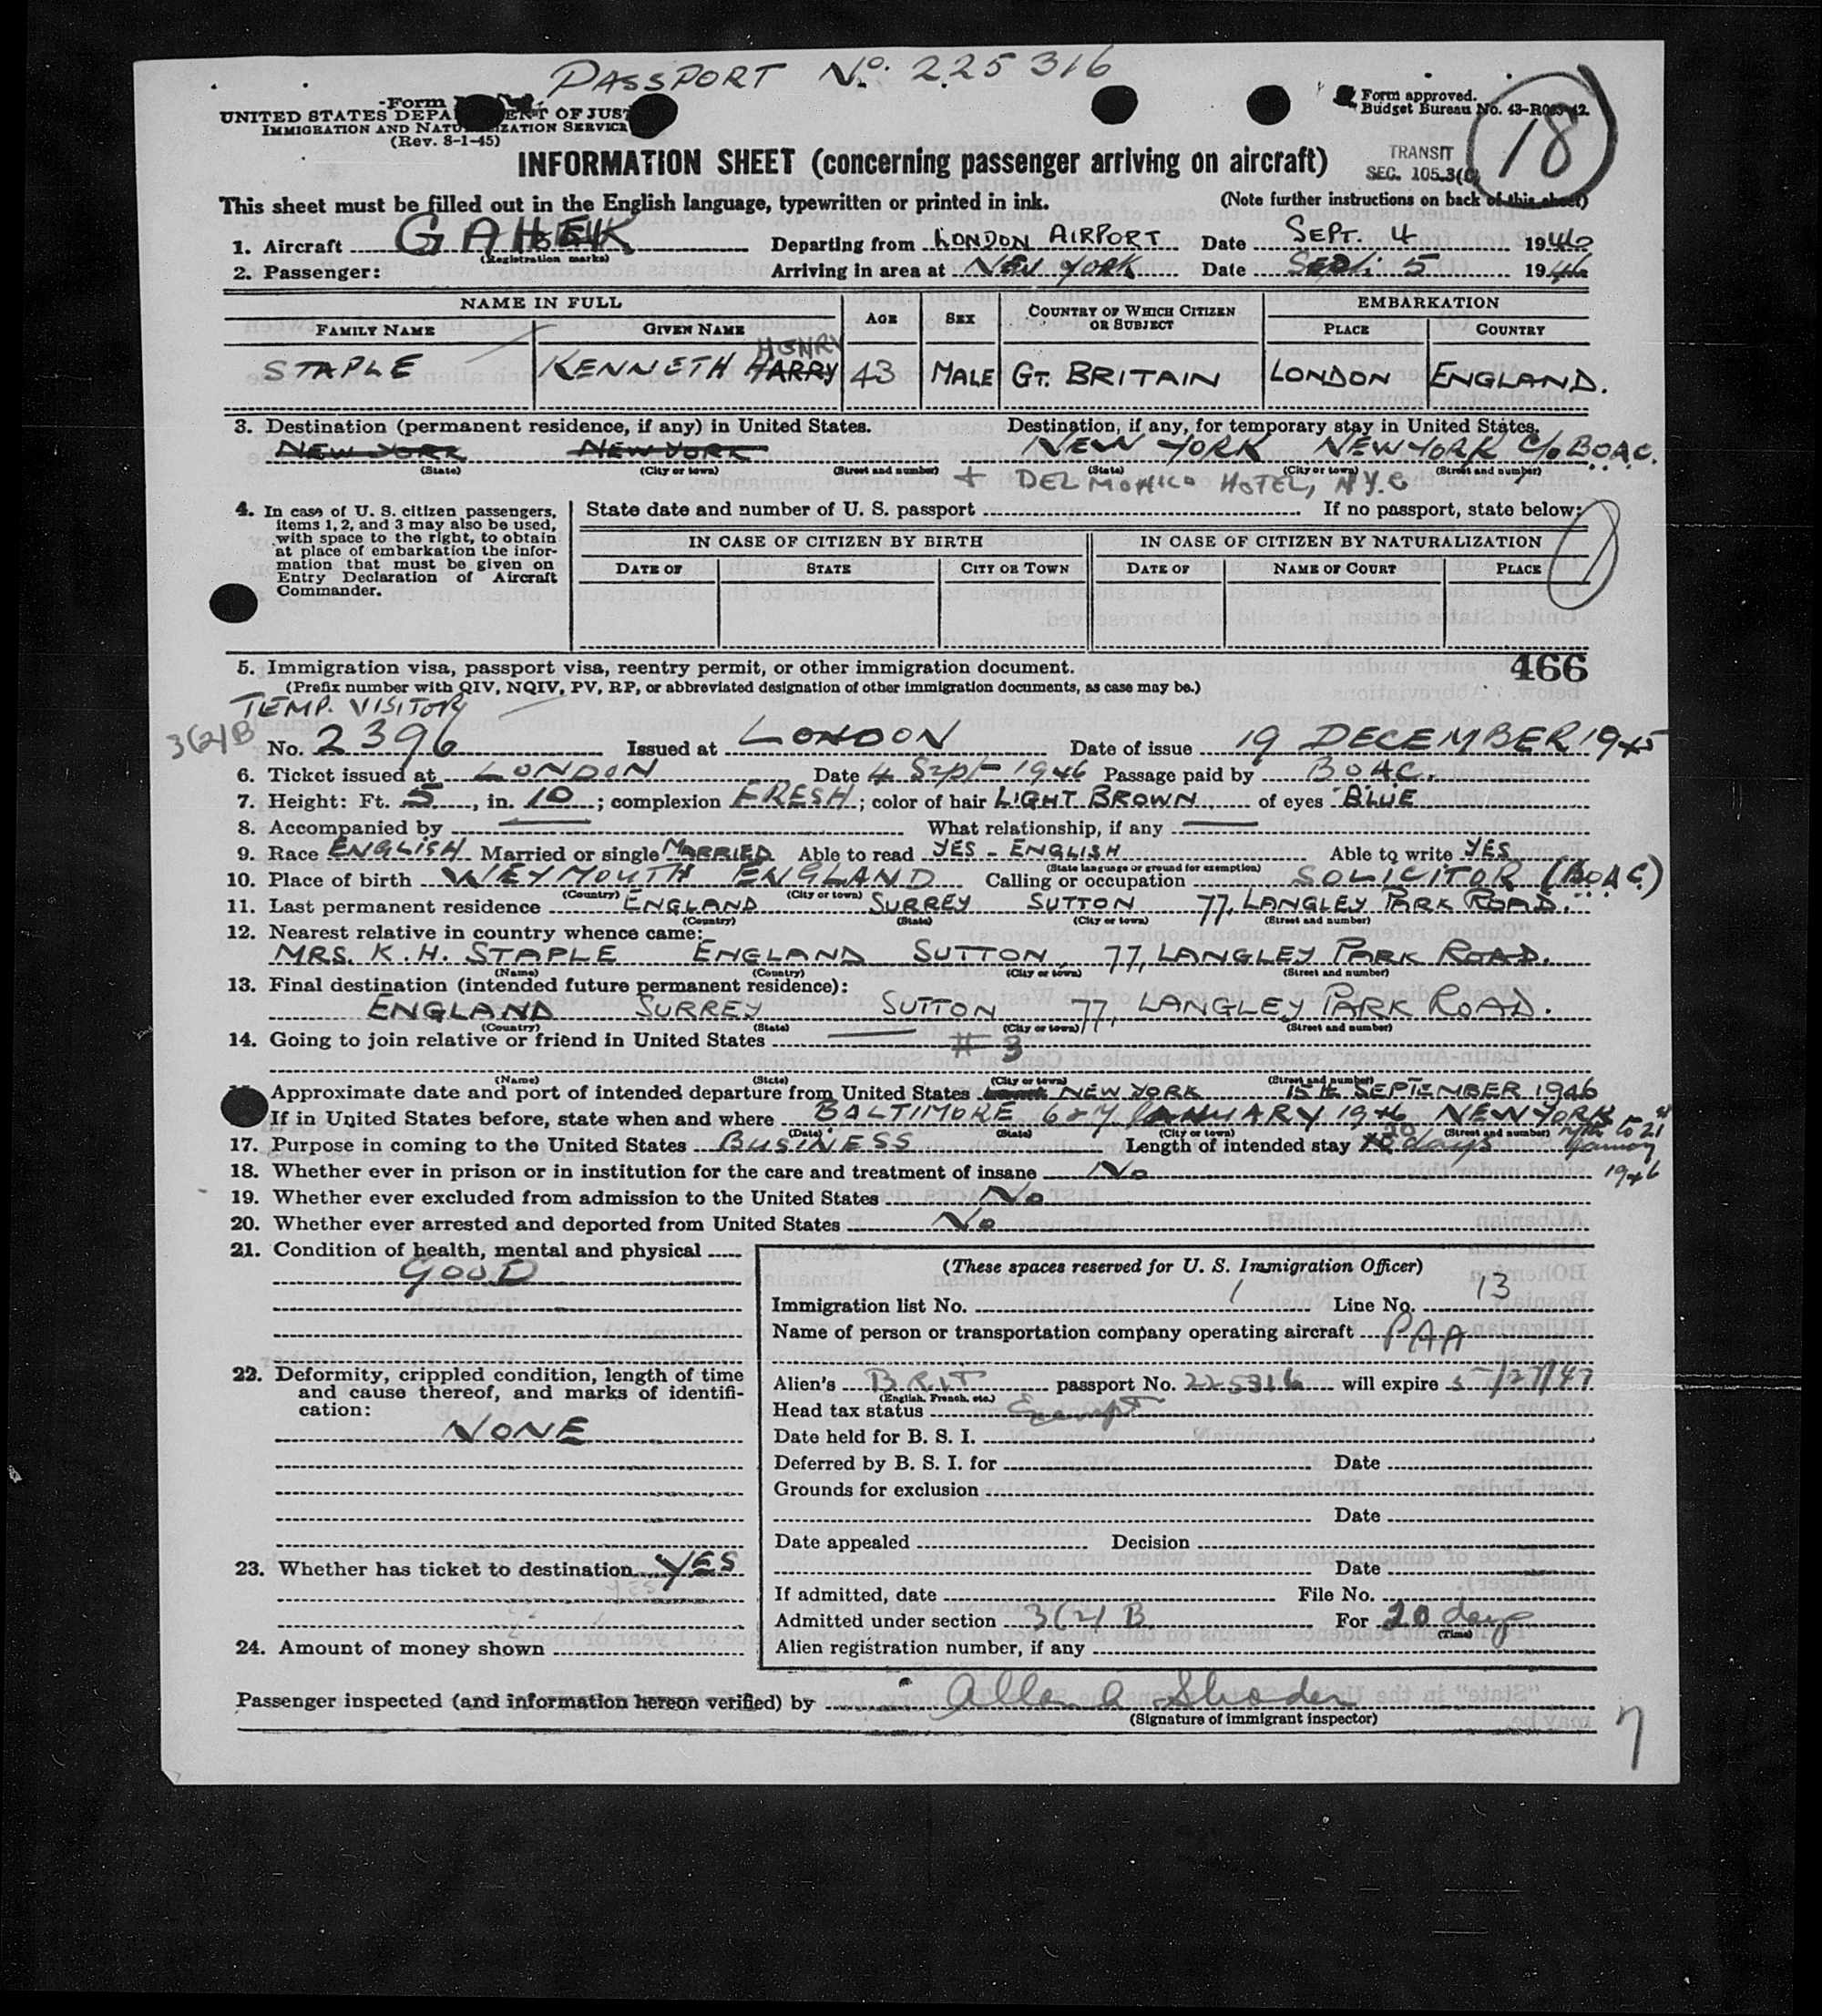 PASSPORT No. 225316
Form
UNITED STATES DEPARTMENT OF JUSTICE
IMMIGRATION AND NATURALIZATION SERVICE
(Rev. 8-1-45)
Form approved.
Budget Bureau No. 43-R083-42.
18
INFORMATION SHEET (concerning passenger arriving on aircraft)
TRANSIT
SEC. 105.3(C)
This sheet must be filled out in the English language, typewritten or printed in ink. (Note further instructions on back of this sheet)
1. Aircraft G AHEK (Registration marks) Departing from LONDON AIRPORT Date SEPT. 4 1946
2. Passenger: Arriving in area at NEW YORK Date Sept. 5 1946
NAME IN FULL AGE SEX COUNTRY OF WHICH CITIZEN OR SUBJECT EMBARKATION
FAMILY NAME GIVEN NAME PLACE COUNTRY
HENRY
STAPLE KENNETH HARRY 43 MALE GT. BRITAIN LONDON ENGLAND.
3. Destination (permanent residence, if any) in United States. Destination, if any, for temporary stay in United States.
NEW YORK NEW YORK NEW YORK NEW YORK C/o B.O.A.C.
(State) (City or town) (Street and number) (State) (City or town) (Street and number)
+ DELMONICO HOTEL, N.Y.C
4. In case of U. S. citizen passengers, items 1, 2, and 3 may also be used, with space to the right, to obtain at place of embarkation the information that must be given on Entry Declaration of Aircraft Commander.
State date and number of U. S. passport If no passport, state below:
IN CASE OF CITIZEN BY BIRTH IN CASE OF CITIZEN BY NATURALIZATION
DATE OF STATE CITY OR TOWN DATE OF NAME OF COURT PLACE
5. Immigration visa, passport visa, reentry permit, or other immigration document. 466
(Prefix number with QIV, NQIV, PV, RP, or abbreviated designation of other immigration documents, as case may be.)
TEMP. VISITOR
3(2)B No. 2396 Issued at LONDON Date of issue 19 DECEMBER 1945
6. Ticket issued at LONDON Date 4 Sept 1946 Passage paid by BOAC.
7. Height: Ft. 5, in. 10; complexion FRESH; color of hair LIGHT BROWN of eyes BLUE
8. Accompanied by What relationship, if any
9. Race ENGLISH Married or single MARRIED Able to read YES - ENGLISH Able to write YES
(State language or ground for exemption)
10. Place of birth WEYMOUTH ENGLAND Calling or occupation SOLICITOR (B.O.A.C.)
(Country) (City or town)
11. Last permanent residence ENGLAND SURREY SUTTON 77, LANGLEY PARK ROAD.
(Country) (State) (City or town) (Street and number)
12. Nearest relative in country whence came:
MRS. K. H. STAPLE ENGLAND SUTTON, 77, LANGLEY PARK ROAD.
(Name) (Country) (City or town) (Street and number)
13. Final destination (intended future permanent residence):
ENGLAND SURREY SUTTON 77, LANGLEY PARK ROAD.
(Country) (State) (City or town) (Street and number)
14. Going to join relative or friend in United States
# 3
(Name) (State) (City or town) (Street and number)
Approximate date and port of intended departure from United States NEW YORK 15th SEPTEMBER 1946
If in United States before, state when and where BALTIMORE 6 & 7 JANUARY 1946 NEW YORK 7th to 21st January 1946
(Date) (State) (City or town) (Street and number)
17. Purpose in coming to the United States BUSINESS Length of intended stay 20 days
18. Whether ever in prison or in institution for the care and treatment of insane No
19. Whether ever excluded from admission to the United States No
20. Whether ever arrested and deported from United States No
21. Condition of health, mental and physical
GOOD
22. Deformity, crippled condition, length of time and cause thereof, and marks of identification:
NONE
23. Whether has ticket to destination YES
24. Amount of money shown
(These spaces reserved for U. S. Immigration Officer)
Immigration list No. 1 Line No. 13
Name of person or transportation company operating aircraft PAA
Alien's BRIT passport No. 225316 will expire 5/27/47
(English, French, etc.)
Head tax status Exempt
Date held for B. S. I.
Deferred by B. S. I. for Date
Grounds for exclusion
Date
Date appealed Decision
Date
If admitted, date File No.
Admitted under section 3(2)B For 20 days
(Time)
Alien registration number, if any
Passenger inspected (and information hereon verified) by
(Signature of immigrant inspector)
7